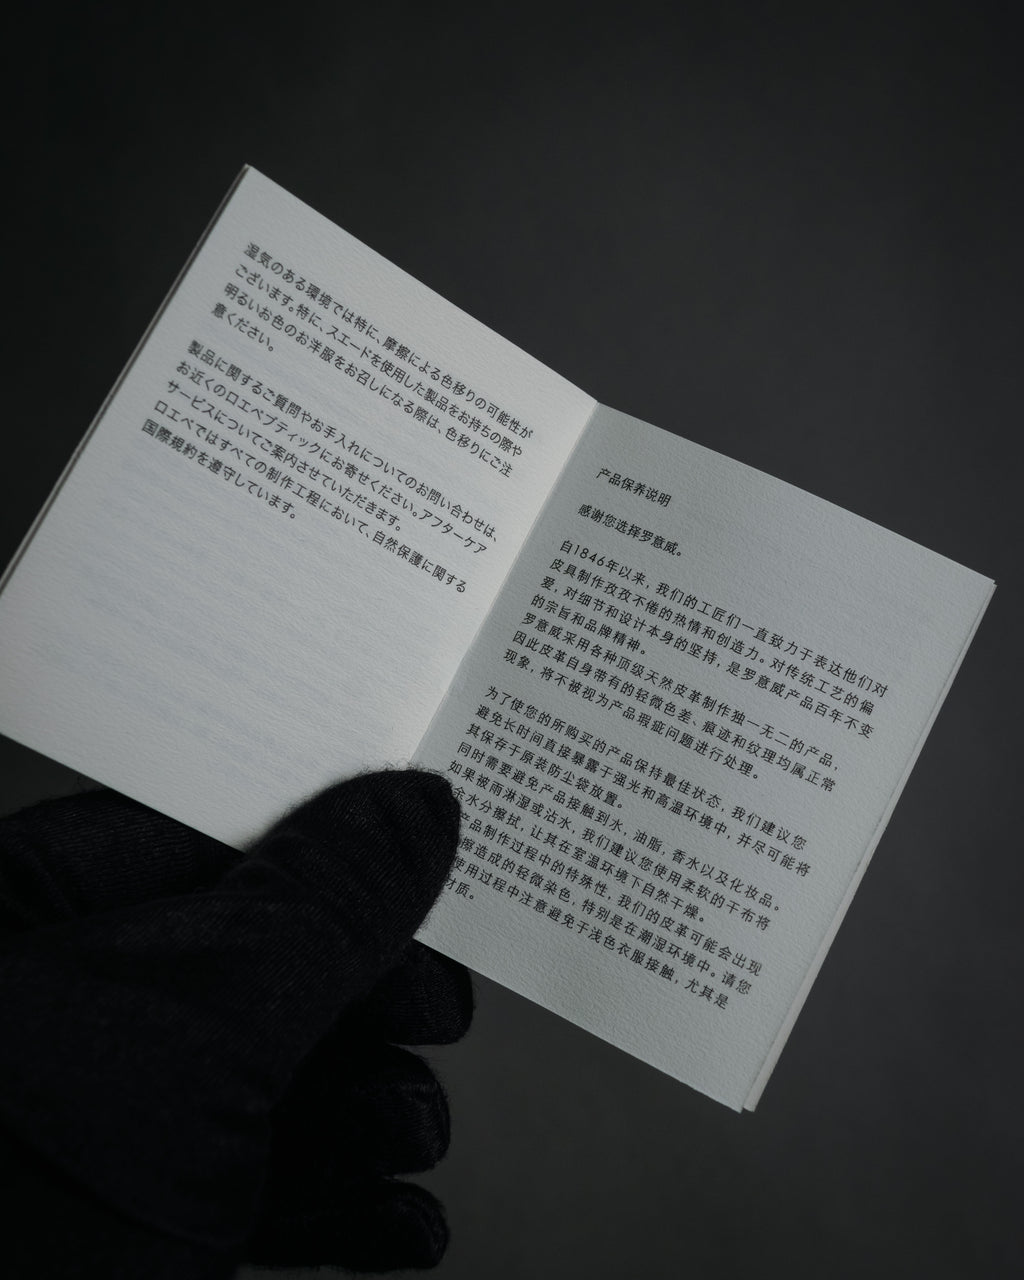 湿気のある環境では特に、摩擦による色移りの可能性が
ございます。特に、スエードを使用した製品をお持ちの際や
明るいお色のお洋服をお召しになる際は、色移りにご注
意ください。
製品に関するご質問やお手入れについてのお問い合わせは、
お近くのロエベブティックにお寄せください。アフターケア
サービスについてご案内させていただきます。
ロエベではすべての制作工程において、自然保護に関する
国際規約を遵守しています。
产品保养说明
感谢您选择罗意威。
自1846年以来，我们的工匠们一直致力于表达他们对
皮具制作孜孜不倦的热情和创造力。对传统工艺的偏
爱，对细节和设计本身的坚持，是罗意威产品百年不变
的宗旨和品牌精神。
罗意威采用各种顶级天然皮革制作独一无二的产品，
因此皮革自身带有的轻微色差、痕迹和纹理均属正常
现象，将不被视为产品瑕疵问题进行处理。
为了使您的所购买的产品保持最佳状态，我们建议您
避免长时间直接暴露于强光和高温环境中，并尽可能将
其保存于原装防尘袋放置。
同时需要避免产品接触到水，油脂，香水以及化妆品。
如果被雨淋湿或沾水，我们建议您使用柔软的干布将
余水分擦拭，让其在室温环境下自然干燥。
产品制作过程中的特殊性，我们的皮革可能会出现
擦造成的轻微染色，特别是在潮湿环境中。请您
使用过程中注意避免于浅色衣服接触，尤其是
材质。